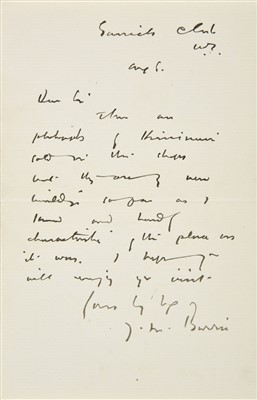 Garrick Club
W.C.
Aug 6.
Dear Sir
There are
photographs of Kirriemuir
sold in the shops
but they are of new
buildings so far as I
know and hardly
characteristic of the place as
it was. I hope you
will enjoy yr visit.
Yours truly
J. M. Barrie